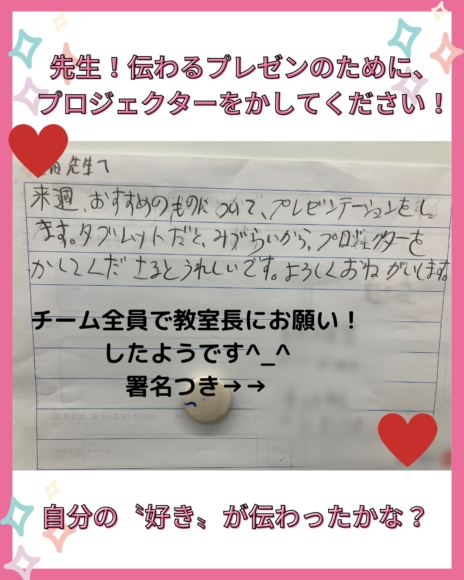 先生！伝わるプレゼンのために、
プロジェクターをかしてください！
先生へ
来週、おすすめのものについて、プレゼンテーションをし
ます。タブレットだと、みづらいから、プロジェクターを
かしてくださるとうれしいです。よろしくおねがいします。
チーム全員で教室長にお願い！
したようです^_^
署名つき→→
自分の〝好き〟が伝わったかな？